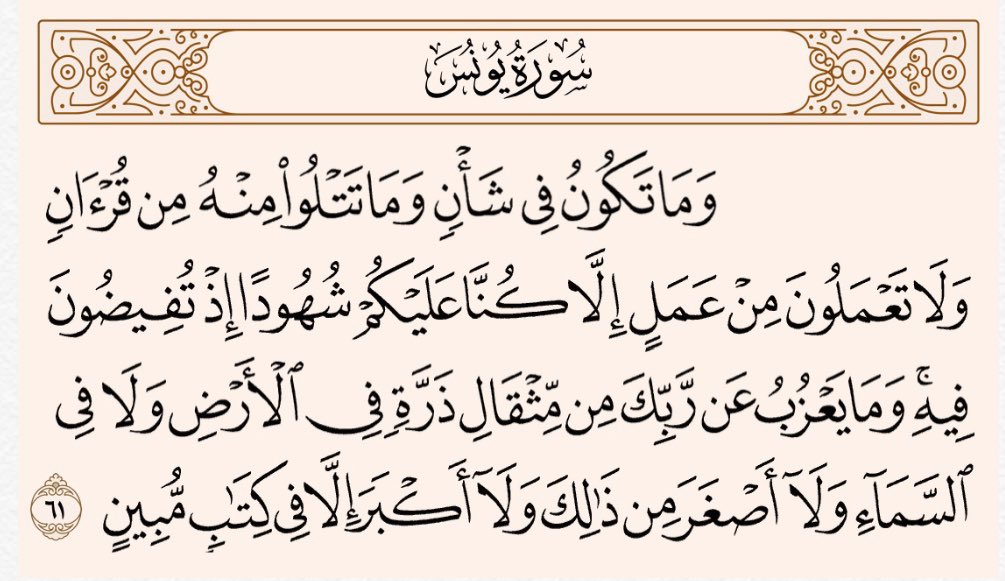 سُورَةُ يُونُسَ
وَمَا تَكُونُ فِى شَأْنٍ وَمَا تَتْلُوا۟ مِنْهُ مِن قُرْءَانٍ
وَلَا تَعْمَلُونَ مِنْ عَمَلٍ إِلَّا كُنَّا عَلَيْكُمْ شُهُودًا إِذْ تُفِيضُونَ
فِيهِ ۚ وَمَا يَعْزُبُ عَن رَّبِّكَ مِن مِّثْقَالِ ذَرَّةٍ فِى ٱلْأَرْضِ وَلَا فِى
ٱلسَّمَآءِ وَلَآ أَصْغَرَ مِن ذَٰلِكَ وَلَآ أَكْبَرَ إِلَّا فِى كِتَٰبٍ مُّبِينٍ ٦١